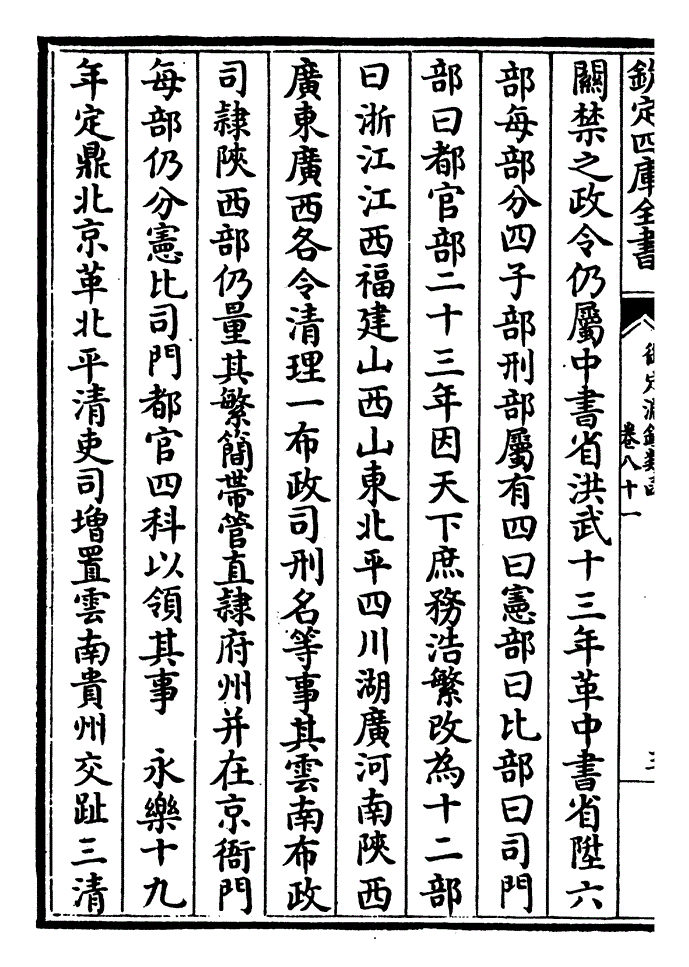 欽定四庫全書
御定淵鑑類函
卷八十一
三
關禁之政令仍屬中書省洪武十三年革中書省陞六
部每部分四子部刑部屬有四曰憲部曰比部曰司門
部曰都官部二十三年因天下庶務浩繁改為十二部
曰浙江江西福建山西山東北平四川湖廣河南陝西
廣東廣西各令清理一布政司刑名等事其雲南布政
司隷陝西部仍量其繁簡帶管直隷府州并在京衙門
每部仍分憲比司門都官四科以領其事　永樂十九
年定鼎北京革北平清吏司增置雲南貴州交趾三清